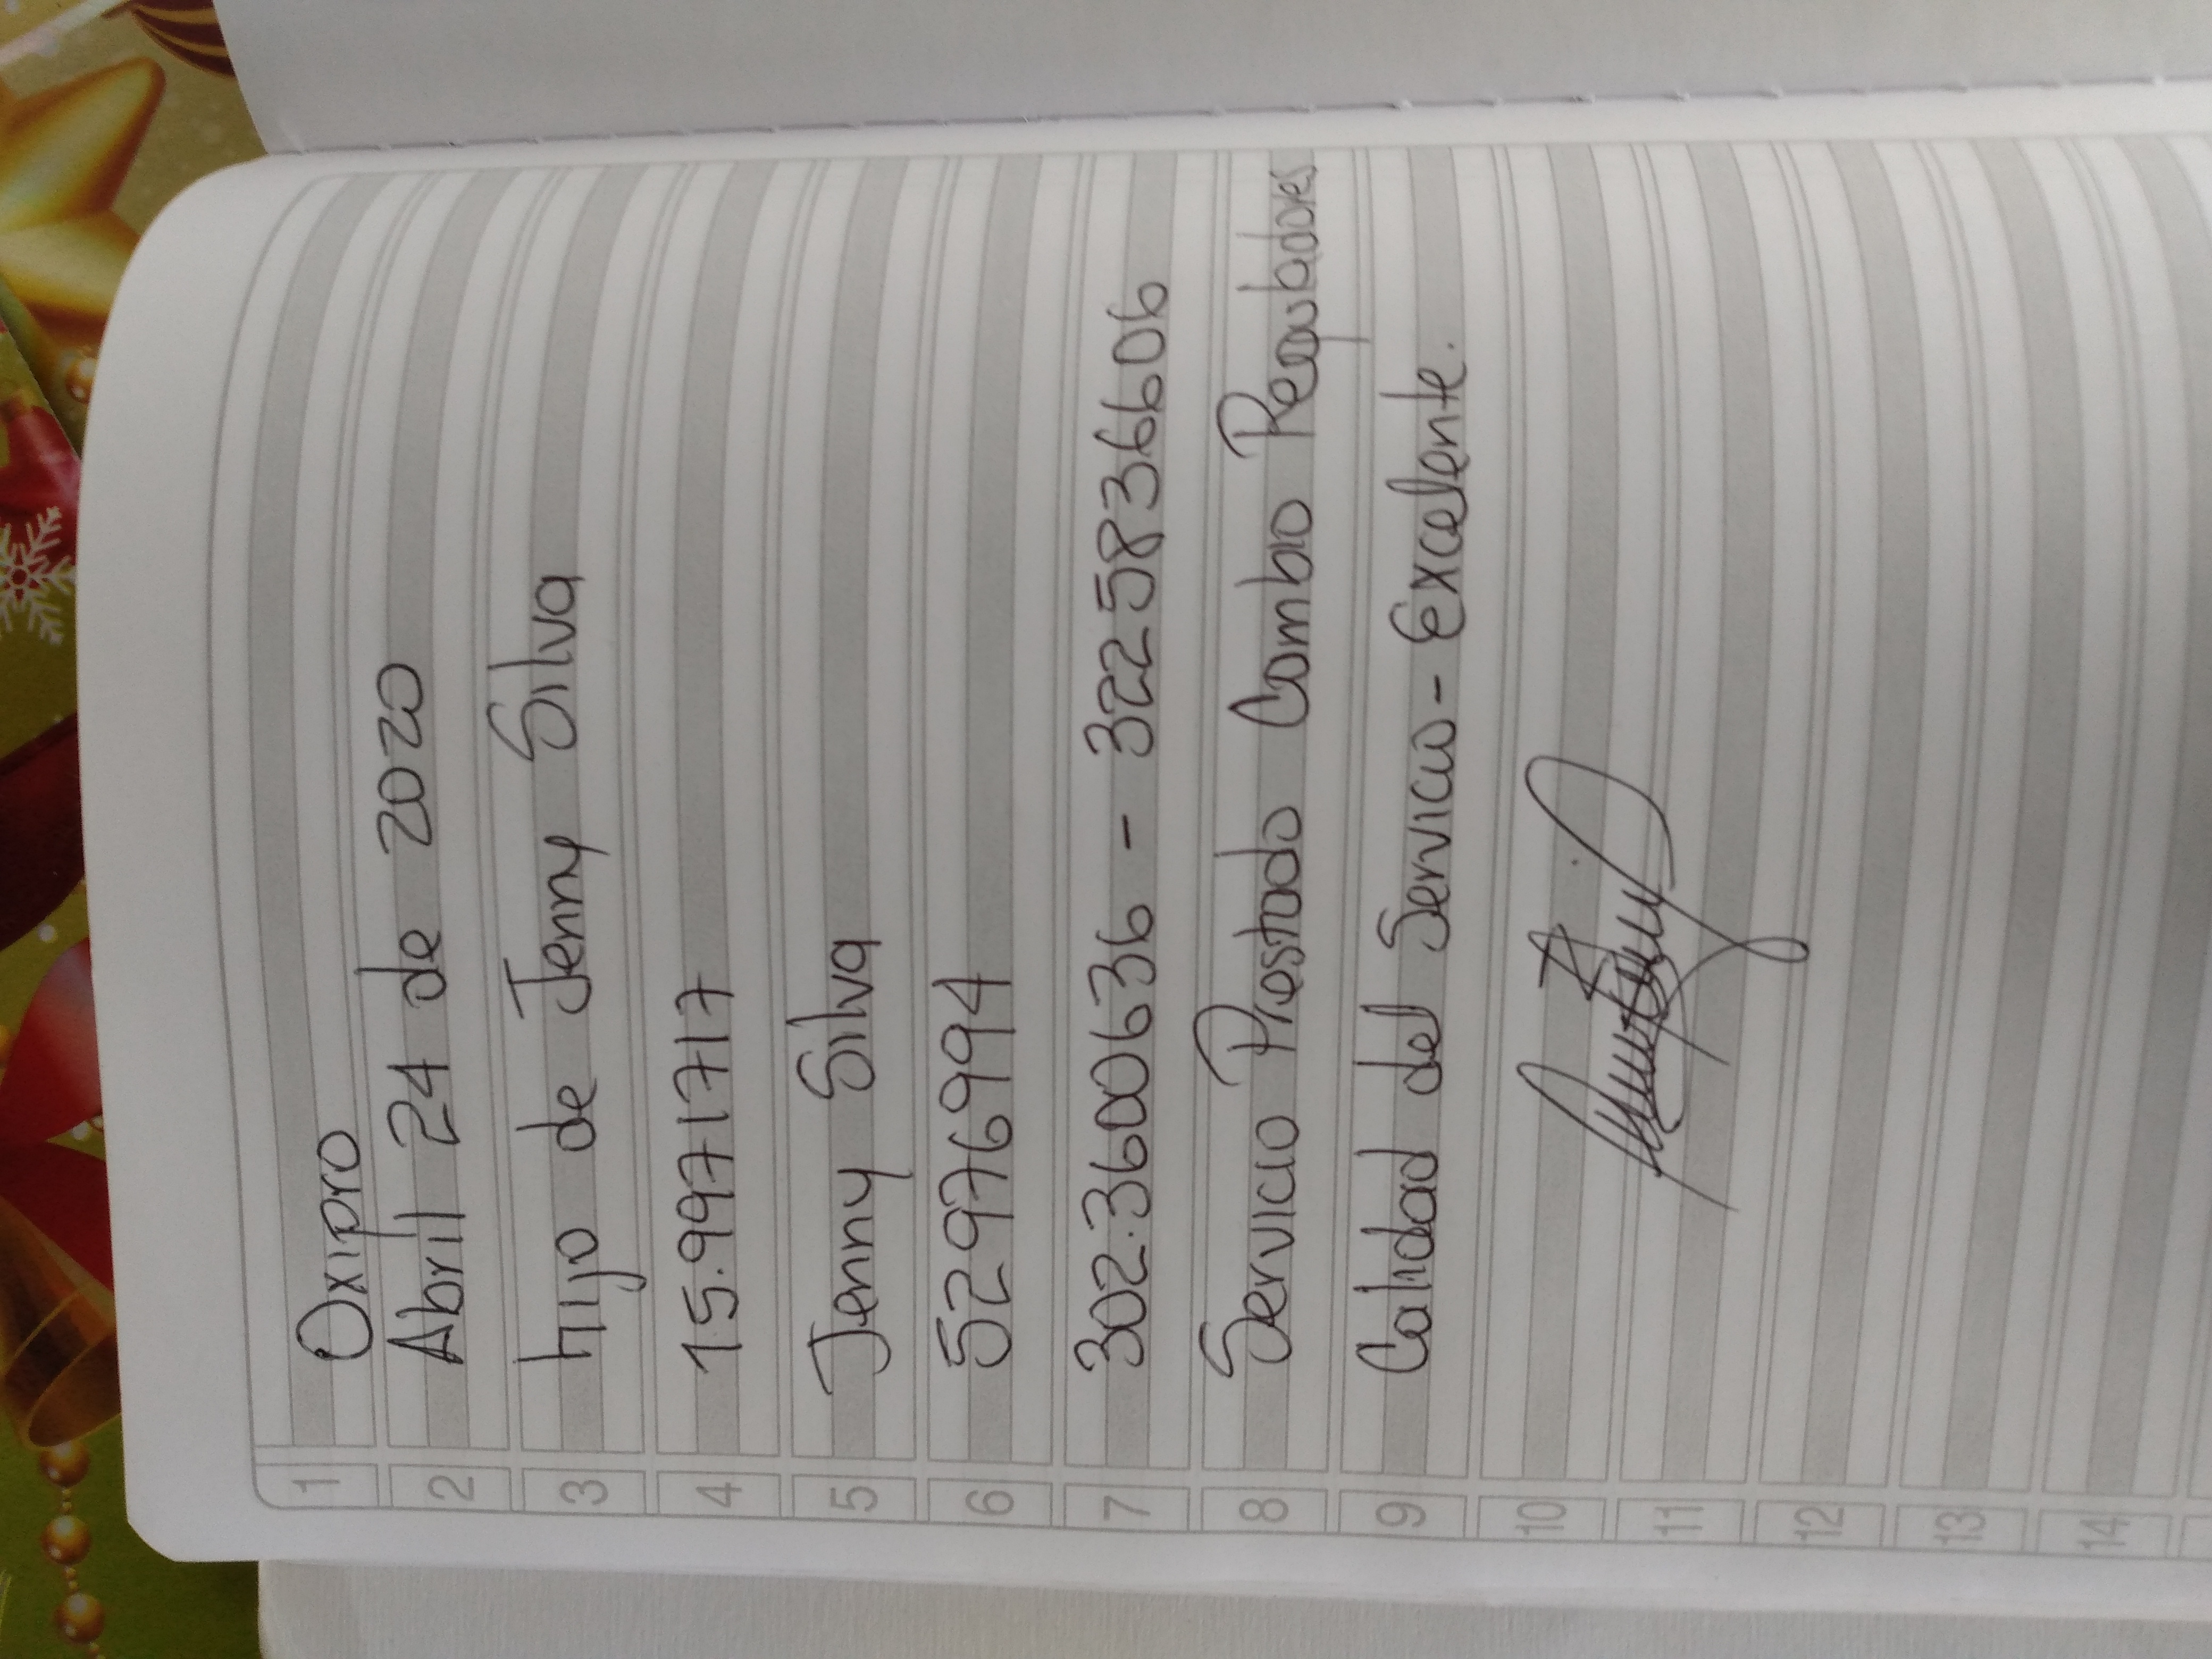 1 Oxipro
2 Abril 24 de 2020
3 hijo de Jenny Silva
4 15.9971717
5 Jenny Silva
6 52976994
7 302.3600636 - 3225836606
8 Servicio Prestado Cambio Reguladores
9 Calidad del Servicio - Excelente.
10
11
12
13
14